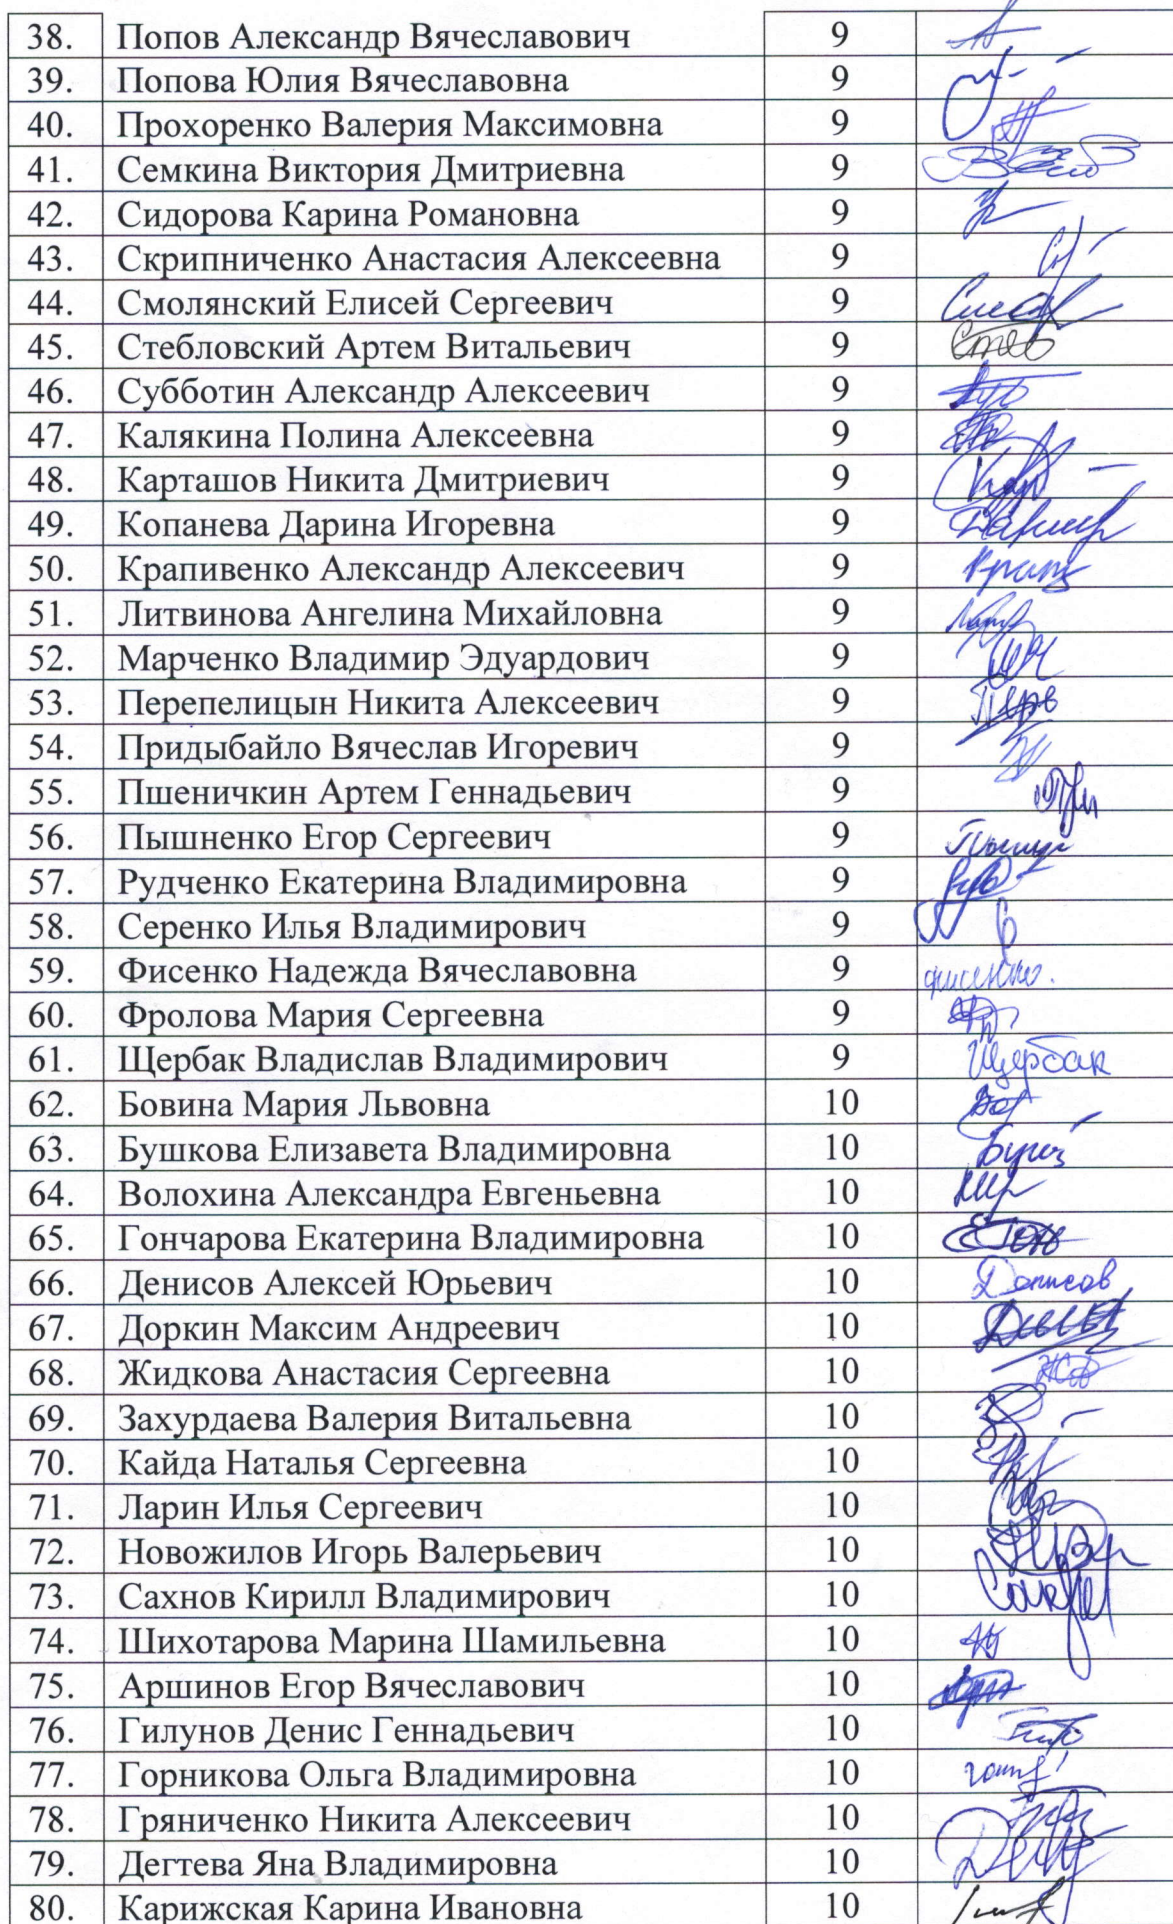 38. Попов Александр Вячеславович 9
39. Попова Юлия Вячеславовна 9
40. Прохоренко Валерия Максимовна 9
41. Семкина Виктория Дмитриевна 9
42. Сидорова Карина Романовна 9
43. Скрипниченко Анастасия Алексеевна 9
44. Смолянский Елисей Сергеевич 9
45. Стебловский Артем Витальевич 9
46. Субботин Александр Алексеевич 9
47. Калякина Полина Алексеевна 9
48. Карташов Никита Дмитриевич 9
49. Копанева Дарина Игоревна 9
50. Крапивенко Александр Алексеевич 9
51. Литвинова Ангелина Михайловна 9
52. Марченко Владимир Эдуардович 9
53. Перепелицын Никита Алексеевич 9
54. Придыбайло Вячеслав Игоревич 9
55. Пшеничкин Артем Геннадьевич 9
56. Пышненко Егор Сергеевич 9
57. Рудченко Екатерина Владимировна 9
58. Серенко Илья Владимирович 9
59. Фисенко Надежда Вячеславовна 9 фисенко.
60. Фролова Мария Сергеевна 9
61. Щербак Владислав Владимирович 9 Щербак
62. Бовина Мария Львовна 10
63. Бушкова Елизавета Владимировна 10
64. Волохина Александра Евгеньевна 10
65. Гончарова Екатерина Владимировна 10
66. Денисов Алексей Юрьевич 10 Денисов
67. Доркин Максим Андреевич 10
68. Жидкова Анастасия Сергеевна 10
69. Захурдаева Валерия Витальевна 10
70. Кайда Наталья Сергеевна 10
71. Ларин Илья Сергеевич 10
72. Новожилов Игорь Валерьевич 10
73. Сахнов Кирилл Владимирович 10
74. Шихотарова Марина Шамильевна 10
75. Аршинов Егор Вячеславович 10
76. Гилунов Денис Геннадьевич 10
77. Горникова Ольга Владимировна 10
78. Гряниченко Никита Алексеевич 10
79. Дегтева Яна Владимировна 10
80. Карижская Карина Ивановна 10